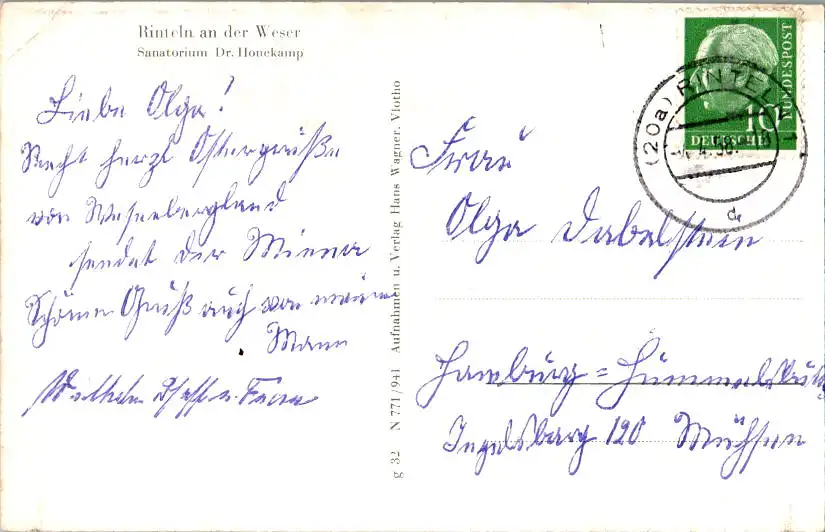 Rinteln an der Weser
Sanatorium Dr. Honekamp
Liebe Olga!
Recht herzl Ostergrüße
von Weserbergland
sendet dir Minna
Schönen Gruß auch von meinem
Mann
Wilhelm u. Frau
g 32 N 771/941 Aufnahmen u. Verlag Hans Wagner, Vlotho
DEUTSCHE
BUNDESPOST
10
(20a) RINTEL
4.4.58
d
Frau
Olga Dabelstein
Hamburg =
120